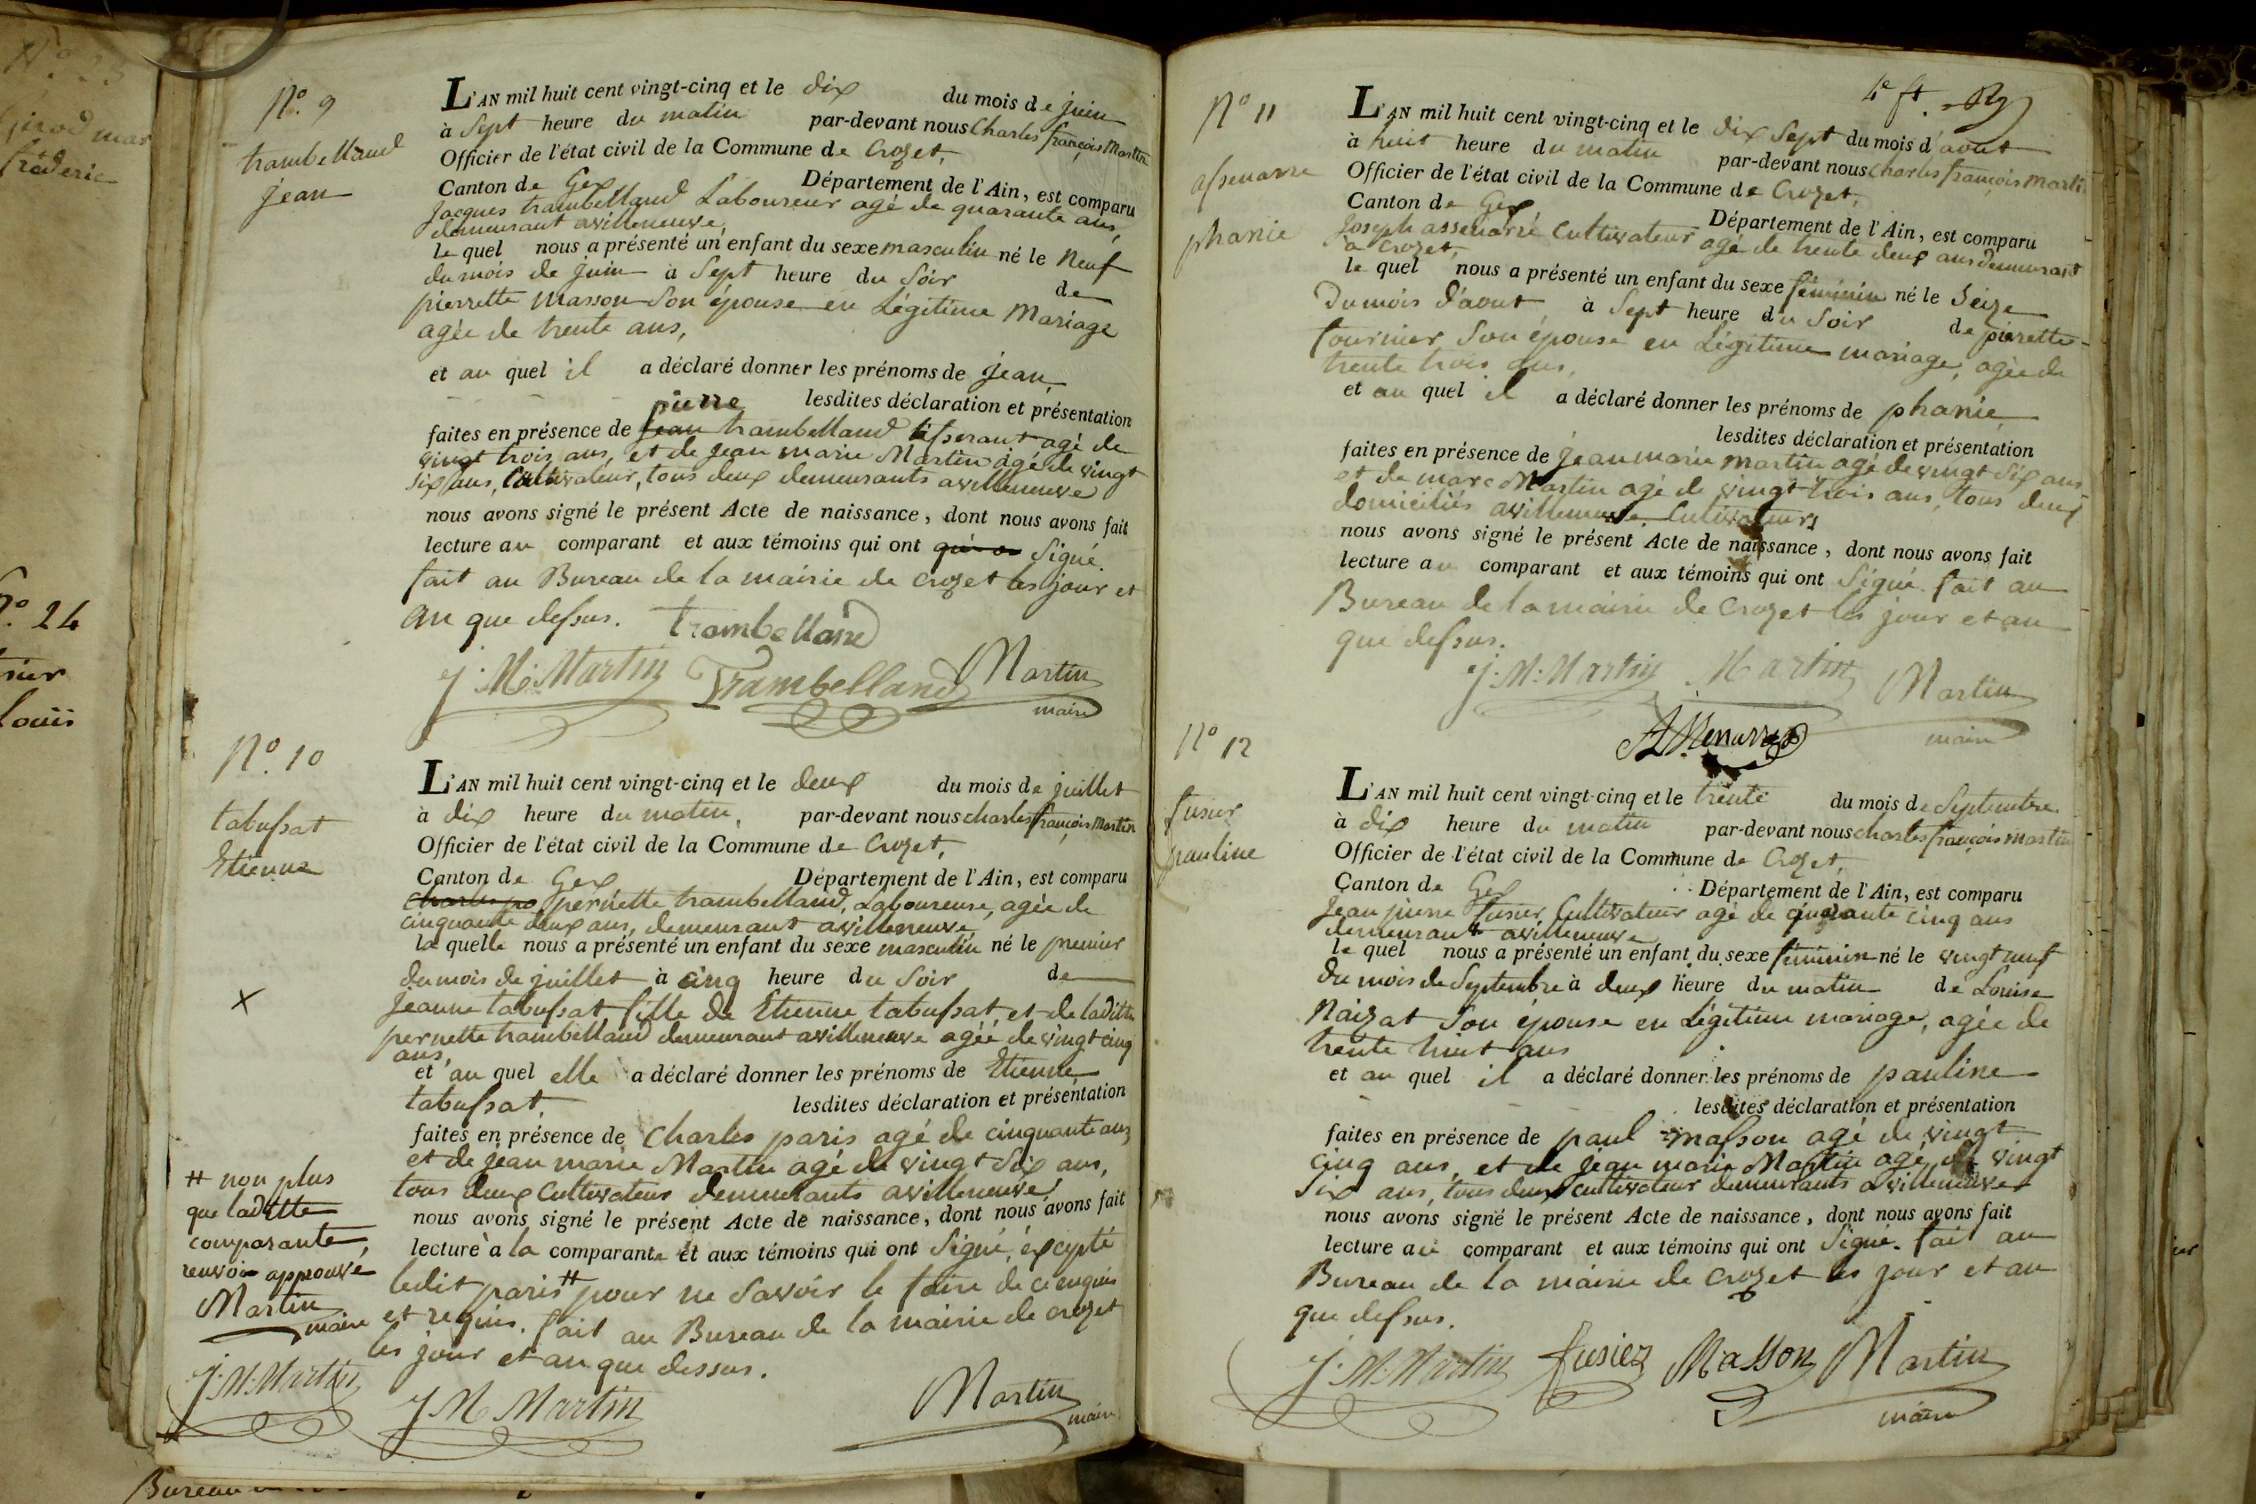 N.o 9
trambelland
jean
L'AN mil huit cent vingt-cinq et le dix du mois de juin
à sept heure du matin par-devant nous charles françois Martin
Officier de l'état civil de la Commune de Crozet,
Canton de Gex Département de l'Ain, est comparu
jacques trambelland Laboureur agé de quarante ans,
demeurant avilleneuve,
le quel nous a présenté un enfant du sexe masculin né le neuf
du mois de juin à sept heure du soir de
pierrette masson son épouse en Légitime Mariage
agée de trente ans,
et au quel il a déclaré donner les prénoms de jean,
lesdites déclaration et présentation
pierre
faites en présence de jean trambelland tisserant agé de
vingt trois ans, et de jean marie Martin agé de vingt
six ans, Cultivateur, tous deux demeurants avilleneuve
nous avons signé le présent Acte de naissance, dont nous avons fait
lecture au comparant et aux témoins qui ont signé.
fait au Bureau de la mairie de crozet les jour et
an que dessus. trambelland
J. M. Martin Trambelland Martin
maire
N.o 10
tabussat
Etienne
L'AN mil huit cent vingt-cinq et le deux du mois de juillet
à dix heure du matin, par-devant nous charles françois Martin
Officier de l'état civil de la Commune de Crozet,
Canton de Gex Département de l'Ain, est comparu
pernette trambelland, Laboureuse, agée de
cinquante deux ans, demeurant avilleneuve
la quelle nous a présenté un enfant du sexe masculin né le premier
du mois de juillet à cinq heure du soir de
jeanne tabussat, fille de Etienne tabussat, et de laditte
pernette trambelland demeurant avilleneuve agéé de vingt cinq
ans,
et au quel elle a déclaré donner les prénoms de Etienne
tabussat, lesdites déclaration et présentation
faites en présence de Charles paris agé de cinquante ans
et de jean marie Martin agé de vingt six ans,
tous deux Cultivateurs demeurants avilleneuve,
nous avons signé le présent Acte de naissance, dont nous avons fait
lecture à la comparante et aux témoins qui ont signé, éxcepté
ledit paris # pour ne savoir le faire de ce enquis
et requis. fait au Bureau de la mairie de crozet
les jour et an que dessus.
# non plus
que laditte
comparante,
renvoi approuvé
Martin
maire
J. M. Martin
J M Martin Martin
maire
4e ft.
N.o 11
assenarre
phanie
L'AN mil huit cent vingt-cinq et le dix sept du mois d'aout
à huit heure du matin par-devant nous charles françois Martin
Officier de l'état civil de la Commune de Crozet,
Canton de Gex Département de l'Ain, est comparu
joseph assenarré Cultivateur agé de trente deux ans demeurant
à crozet,
le quel nous a présenté un enfant du sexe féminin né le seize
du mois d'aout à sept heure du soir de pierrette
fournier son épouse en Légitime mariage, agée de
trente trois ans,
et au quel il a déclaré donner les prénoms de phanie,
lesdites déclaration et présentation
faites en présence de jean marie martin agé de vingt six ans
et de marc Martin agé de vingt trois ans, tous deux
domiciliés avilleneuve Cultivateurs
nous avons signé le présent Acte de naissance, dont nous avons fait
lecture au comparant et aux témoins qui ont signé. fait au
Bureau de la mairie de crozet les jour et an
que dessus.
J. M. Martin Martin Martin
maire
N.o 12
fusier
pauline
L'AN mil huit cent vingt-cinq et le trente du mois de septembre
à dix heure du matin par-devant nous charles françois martin
Officier de l'état civil de la Commune de Crozet,
Canton de Gex Département de l'Ain, est comparu
jean pierre fusier Cultivateur agé de cinq ans
demeurant avilleneuve
le quel nous a présenté un enfant du sexe féminin né le vingt neuf
du mois de septembre à deux heure du matin de Louise
Naizat son épouse en Légitime mariage, agée de
trente huit ans
et au quel il a déclaré donner les prénoms de pauline
lesdites déclaration et présentation
faites en présence de paul masson agé de vingt
cinq ans, et de jean marie Martin agé de vingt
six ans, tous deux cultivateur demeurants avilleneuve
nous avons signé le présent Acte de naissance, dont nous avons fait
lecture au comparant et aux témoins qui ont signé. fait au
Bureau de la mairie de crozet les jour et an
que dessus.
J. M. Martin fusiez Masson Martin
maire